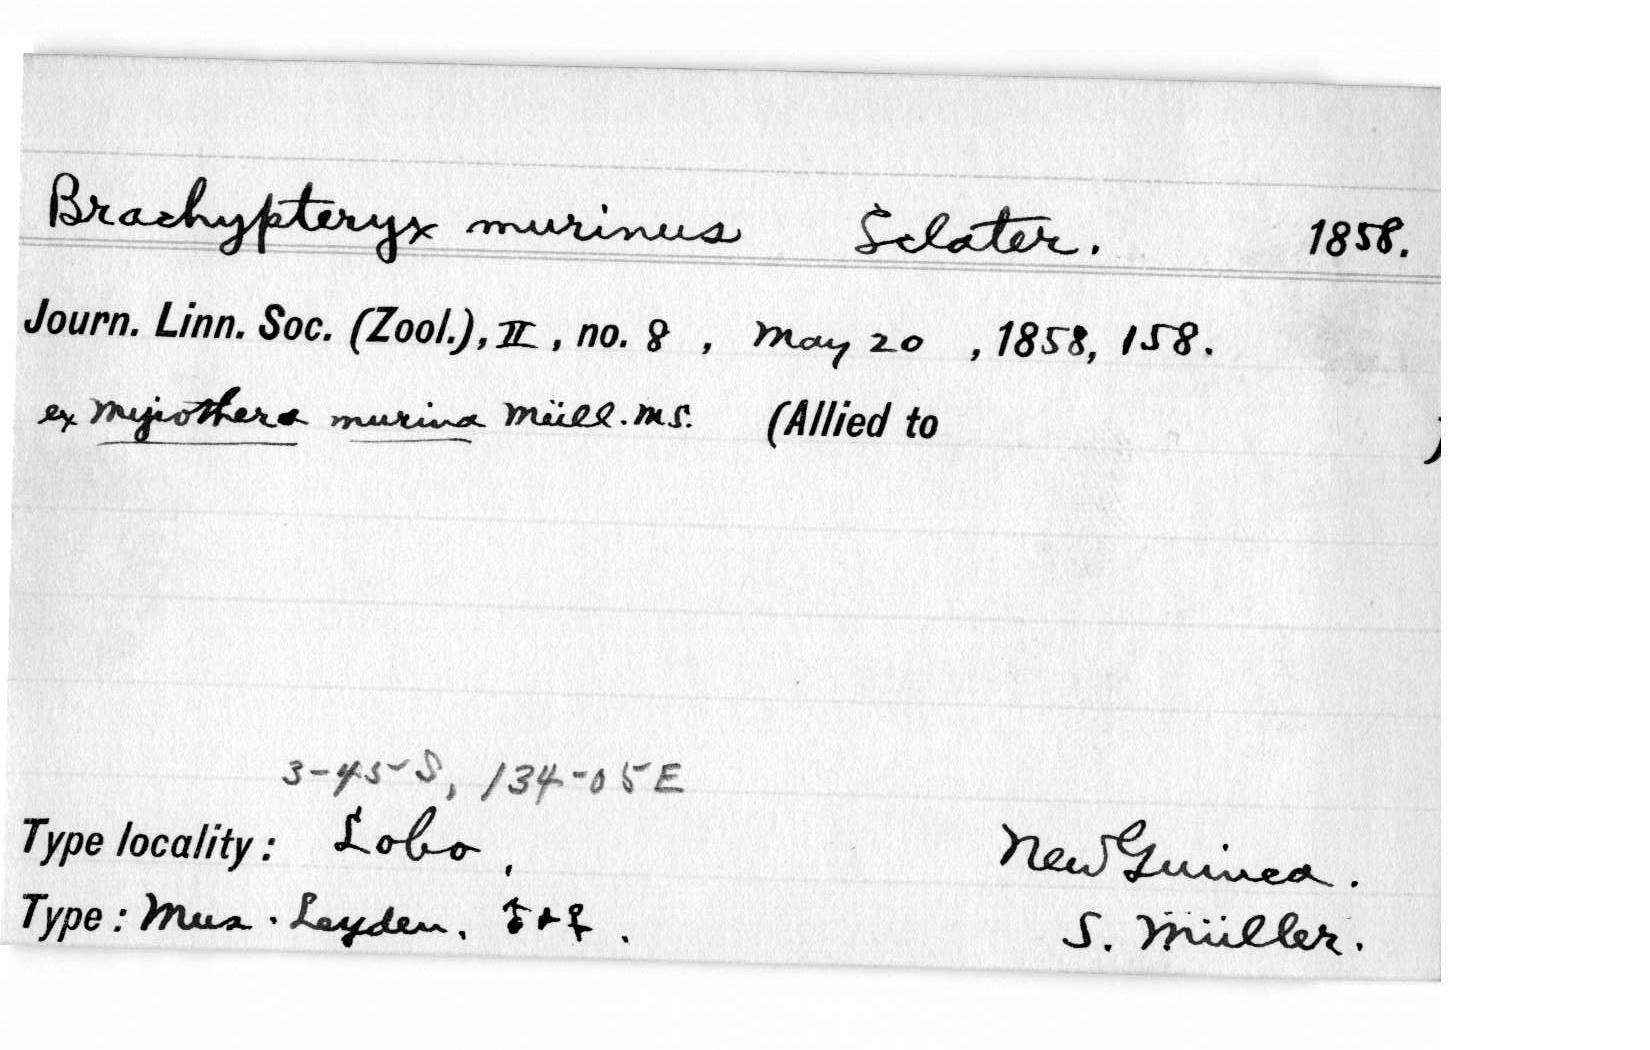 Brachypteryx murinus Sclater. 1858.
Journ. Linn. Soc. (Zool.), II, no. 8, May 20, 1858, 158.
ex Myiothera murina Müll. MS. (Allied to )
3-45 S, 134-05 E
Type locality: Lobo, New Guinea.
Type: Mus. Leyden. ♂ + ♀. S. Müller.